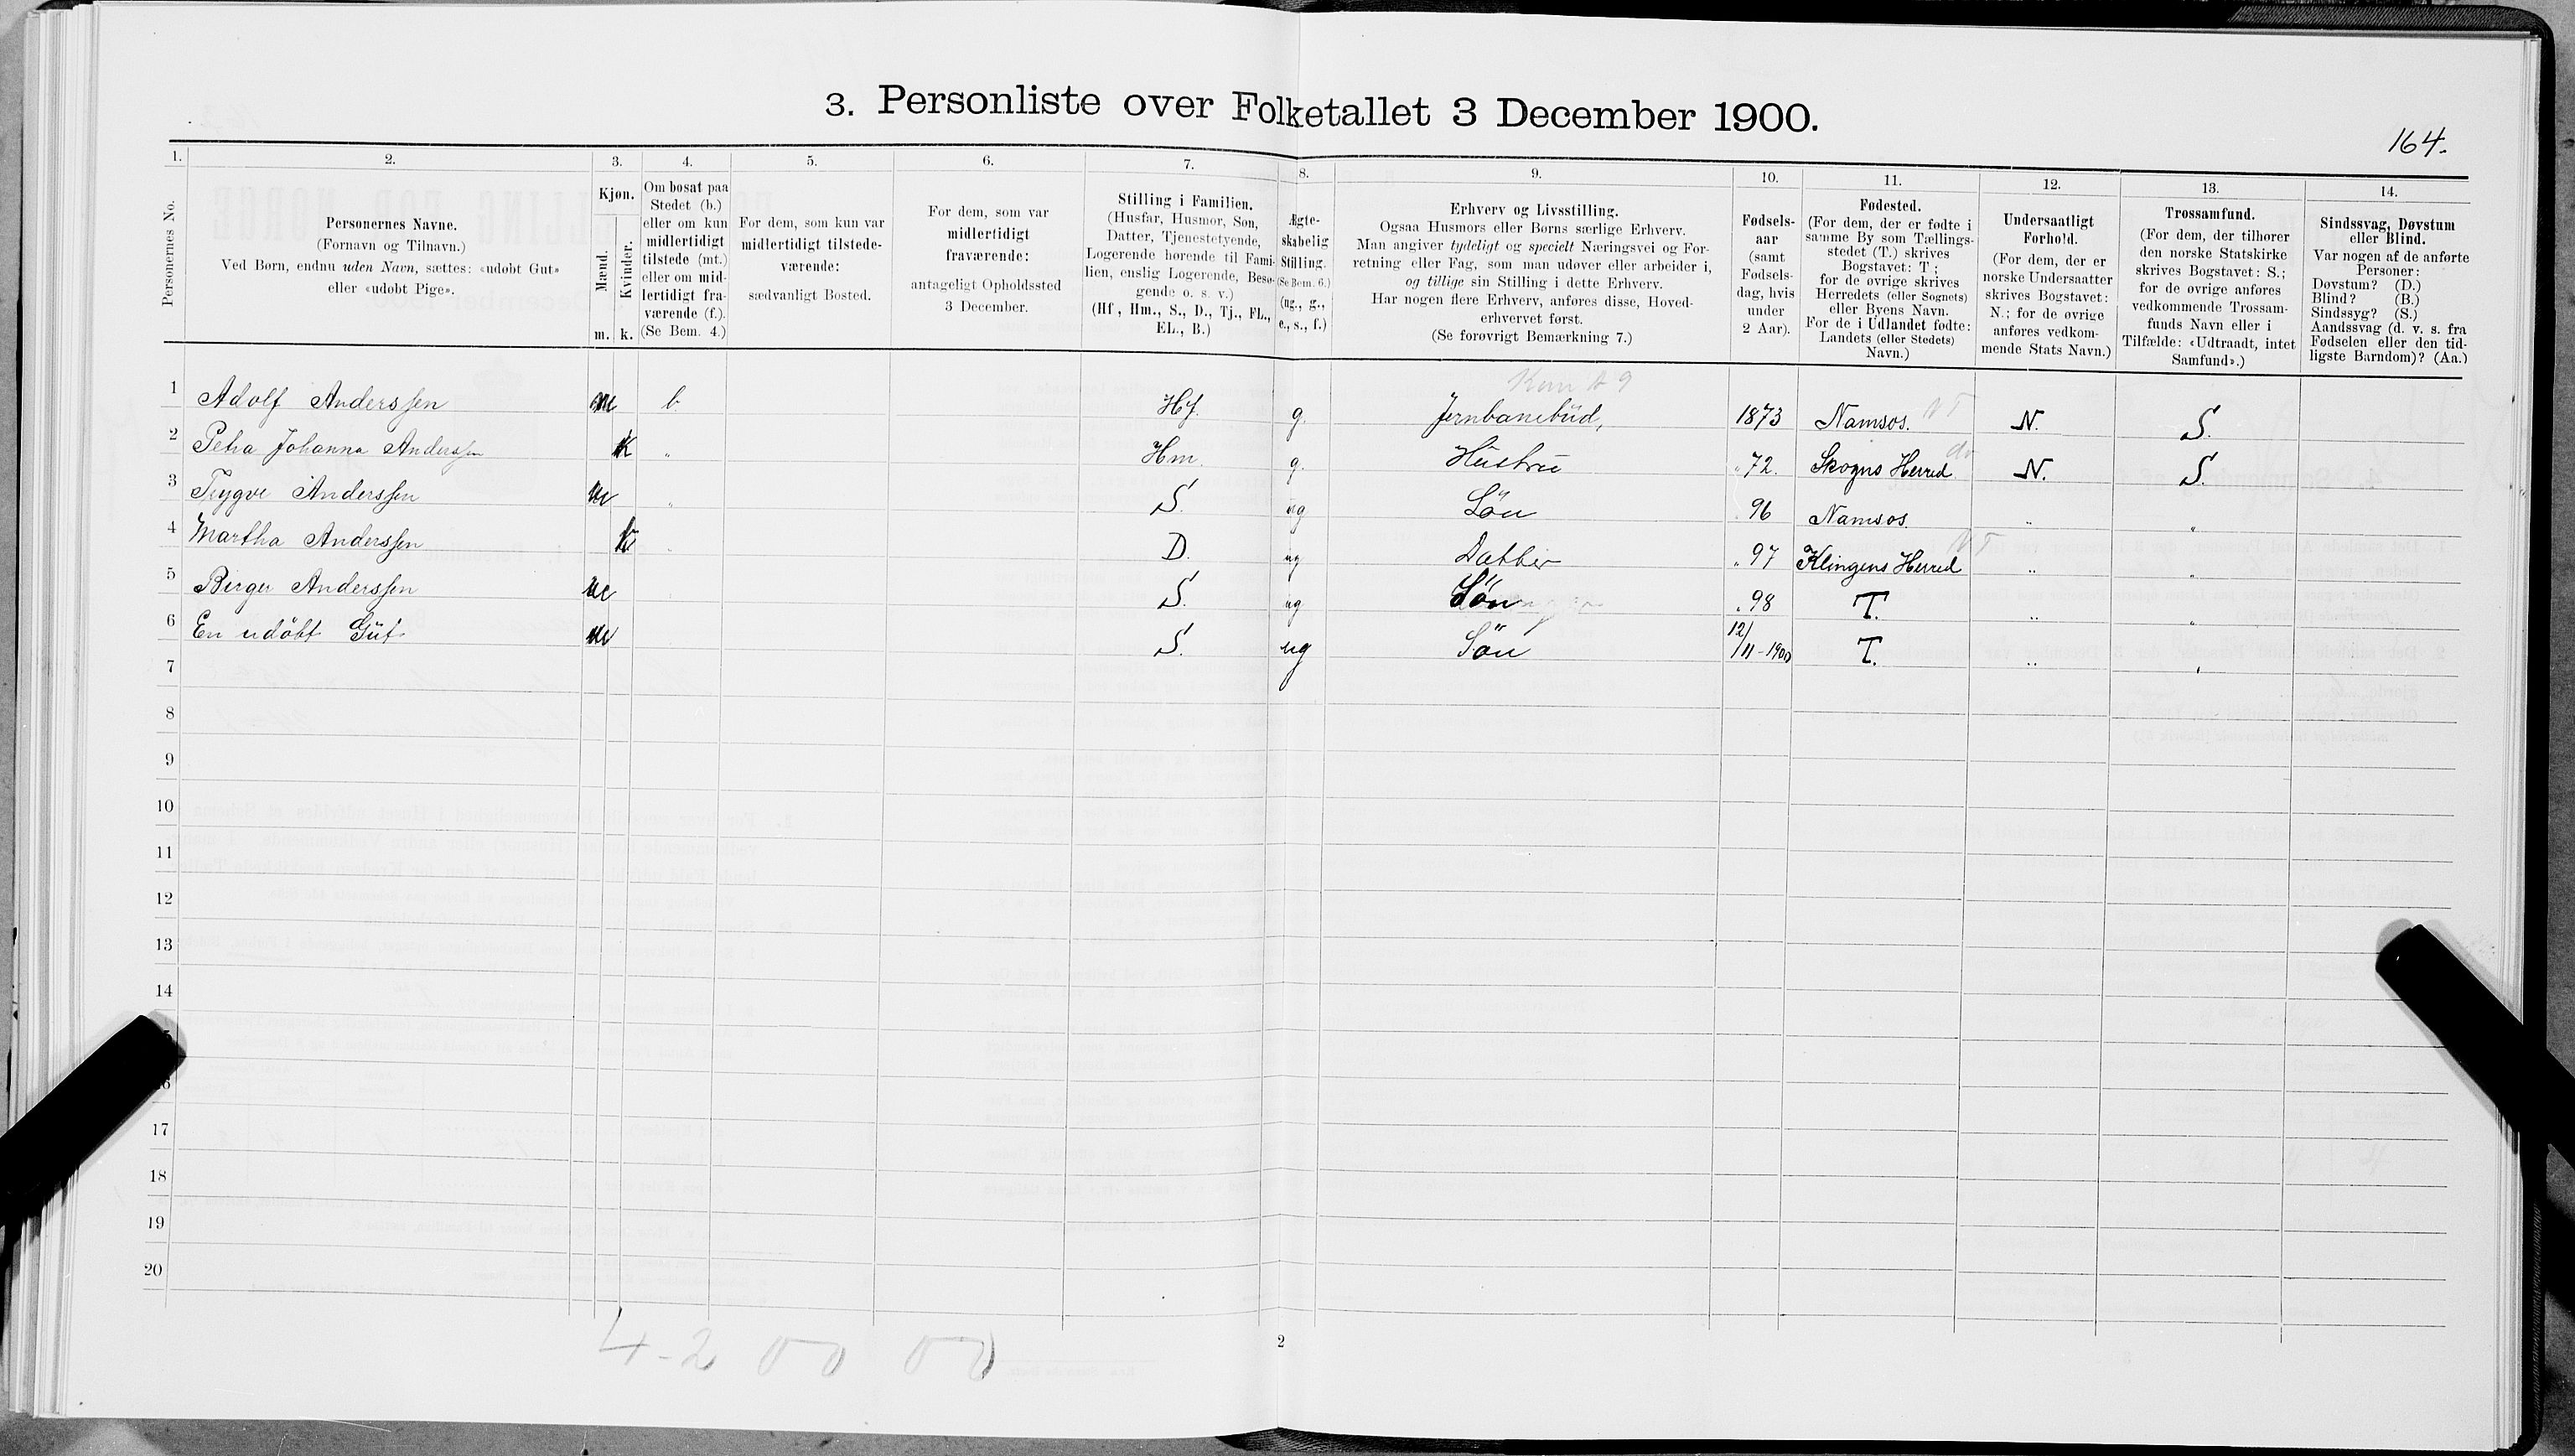 3. Personliste over Folketallet 3 December 1900.
164.
1. 2. 3. 4. 5. 6. 7. 8. 9. 10. 11. 12. 13. 14.
Personernes No.
Personernes Navne.
(Fornavn og Tilnavn.)
Ved Børn, endnu uden Navn, sættes: «udøbt Gut»
eller «udøbt Pige».
Kjøn.
Mænd.
Kvinder.
m. k.
Om bosat paa
Stedet (b.)
eller om kun
midlertidigt
tilstede (mt.)
eller om mid-
lertidigt fra-
værende (f.).
(Se Bem. 4.)
For dem, som kun var
midlertidigt tilstede-
værende:
sædvanligt Bosted.
For dem, som var
midlertidigt
fraværende:
antageligt Opholdssted
3 December.
Stilling i Familien.
(Husfar, Husmor, Søn,
Datter, Tjenestetyende,
Logerende hørende til Fami-
lien, enslig Logerende, Besø-
gende o. s. v.)
(Hf., Hm., S., D., Tj., FL.,
EL., B.)
Ægte-
skabelig
Stilling.
(Se Bem. 6.)
(ug., g.,
e., s., f.)
Erhverv og Livsstilling.
Ogsaa Husmors eller Børns særlige Erhverv.
Man angiver tydeligt og specielt Næringsvei og For-
retning eller Fag, som man udøver eller arbeider i,
og tillige sin Stilling i dette Erhverv.
Har nogen flere Erhverv, anføres disse, Hoved-
erhvervet først.
(Se forøvrigt Bemærkning 7.)
Fødsels-
aar
(samt
Fødsels-
dag, hvis
under
2 Aar).
Fødested.
(For dem, der er fødte i
samme By som Tællings-
stedet (T.) skrives
Bogstavet: T ;
for de øvrige skrives
Herredets (eller Sognets)
eller Byens Navn.
For de i Udlandet fødte:
Landets (eller Stedets)
Navn.)
Undersaatligt
Forhold.
(For dem, der er
norske Undersaatter
skrives Bogstavet:
N.; for de øvrige
anføres vedkom-
mende Stats Navn.)
Trossamfund.
(For dem, der tilhører
den norske Statskirke
skrives Bogstavet: S.;
for de øvrige anføres
vedkommende Trossam-
funds Navn eller i
Tilfælde: «Udtraadt, intet
Samfund».)
Sindssvag, Døvstum
eller Blind.
Var nogen af de anførte
Personer:
Døvstum? (D.)
Blind? (B.)
Sindssyg? (S.)
Aandssvag (d. v. s. fra
Fødselen eller den tid-
ligste Barndom)? (Aa.)
1 Adolf Anderssen m b. Hf. g. Jernbanebud, 1873 Namsos. N T N. S.
2 Petra Johanna Anderssen K " Hm. g. Hustru " 72. Skogns Herred do N. S.
3 Trygve Anderssen m " S. ug Søn 96 Namsos. " "
4 Martha Anderssen k " D. ug Datter " 97 Klingens Herred N T " "
5 Birger Anderssen m S. ug Søn " 98 T. " "
6 En udöbt Gut m S. ug Søn 12/11-1900 T. " "
7
8
9
10
11
12
13
14
5
6
17
18
19
20
4-2 00 00
2